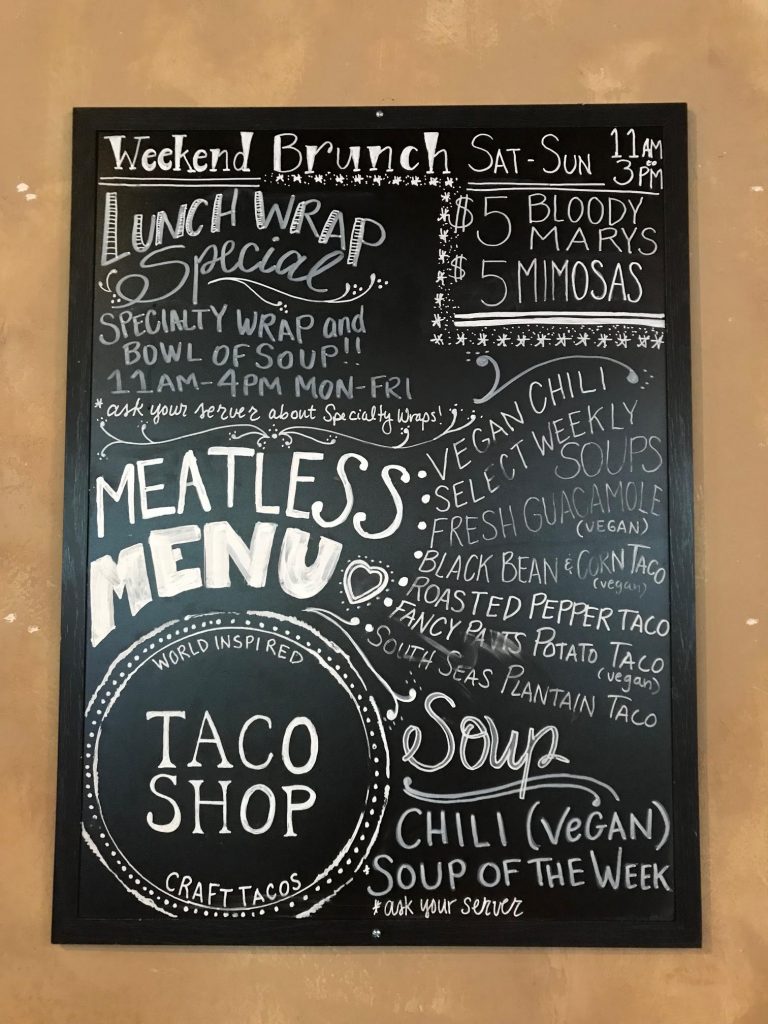 Weekend Brunch SAT-SUN 11AM to 3PM
$5 BLOODY MARYS
$5 MIMOSAS
LUNCH WRAP
Special
SPECIALTY WRAP and
BOWL OF SOUP!!
11AM-4PM MON-FRI
*ask your server about Specialty Wraps!
MEATLESS
MENU
VEGAN CHILI
SELECT WEEKLY
SOUPS
FRESH GUACAMOLE
(VEGAN)
BLACK BEAN & CORN TACO
(vegan)
ROASTED PEPPER TACO
FANCY PANTS POTATO TACO
(vegan)
SOUTH SEAS PLANTAIN TACO
WORLD INSPIRED
TACO
SHOP
CRAFT TACOS
Soup
CHILI (VEGAN)
*SOUP OF THE WEEK
*ask your server